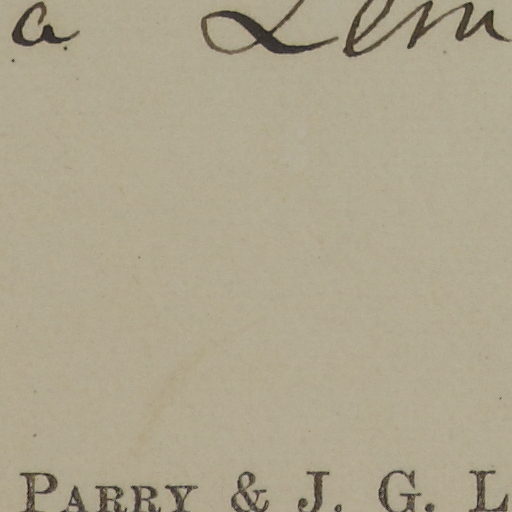 a Lem
PARRY & J. G. L